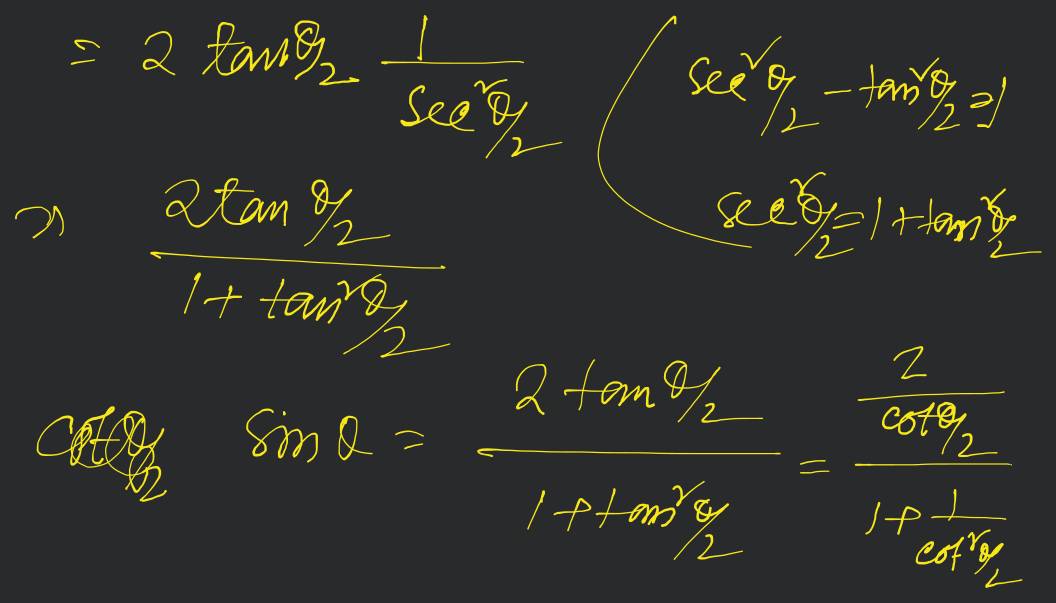 = 2 tan θ/2 · 1/(sec²θ/2)
sec²θ/2 − tan²θ/2 = 1
sec²θ/2 = 1 + tan²θ/2
⇒ (2 tan θ/2)/(1 + tan²θ/2)
cotθ/2 sin θ = (2 tan θ/2)/(1 + tan²θ/2) = (2/(cotθ/2))/(1 + 1/(cot²θ/2))